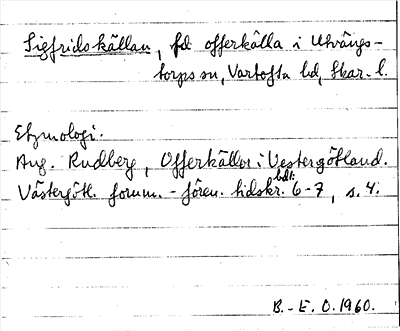 Sigfridskällan, fd offerkälla i Utvängs-
torps sn, Vartofta hd, Skar. l.
Etymologi.
Aug. Rudberg, Offerkällor i Vestergötland.
Västergötl. fornm.-fören. tidskr. bd 1: 6-7, s. 4.
B.-E. O. 1960.